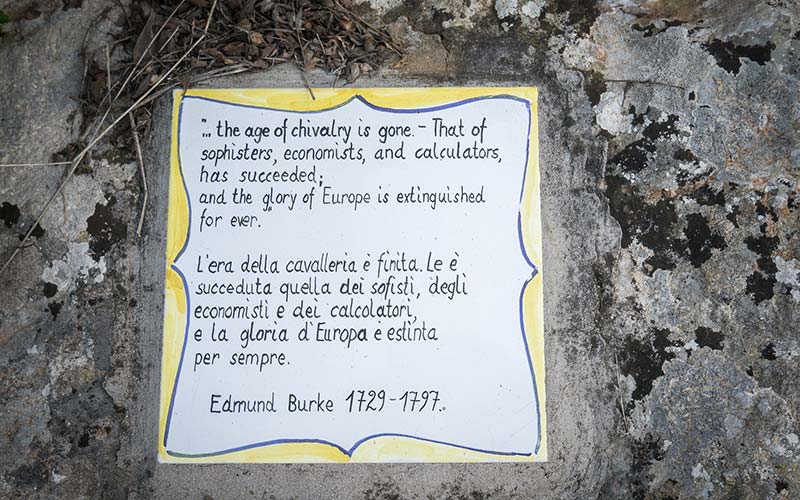 "... the age of chivalry is gone. - That of
sophisters, economists, and calculators,
has succeeded;
and the glory of Europe is extinguished
for ever."
L'era della cavalleria è finita. Le è
succeduta quella dei sofisti, degli
economisti e dei calcolatori,
e la gloria d'Europa è estinta
per sempre.
Edmund Burke 1729-1797.